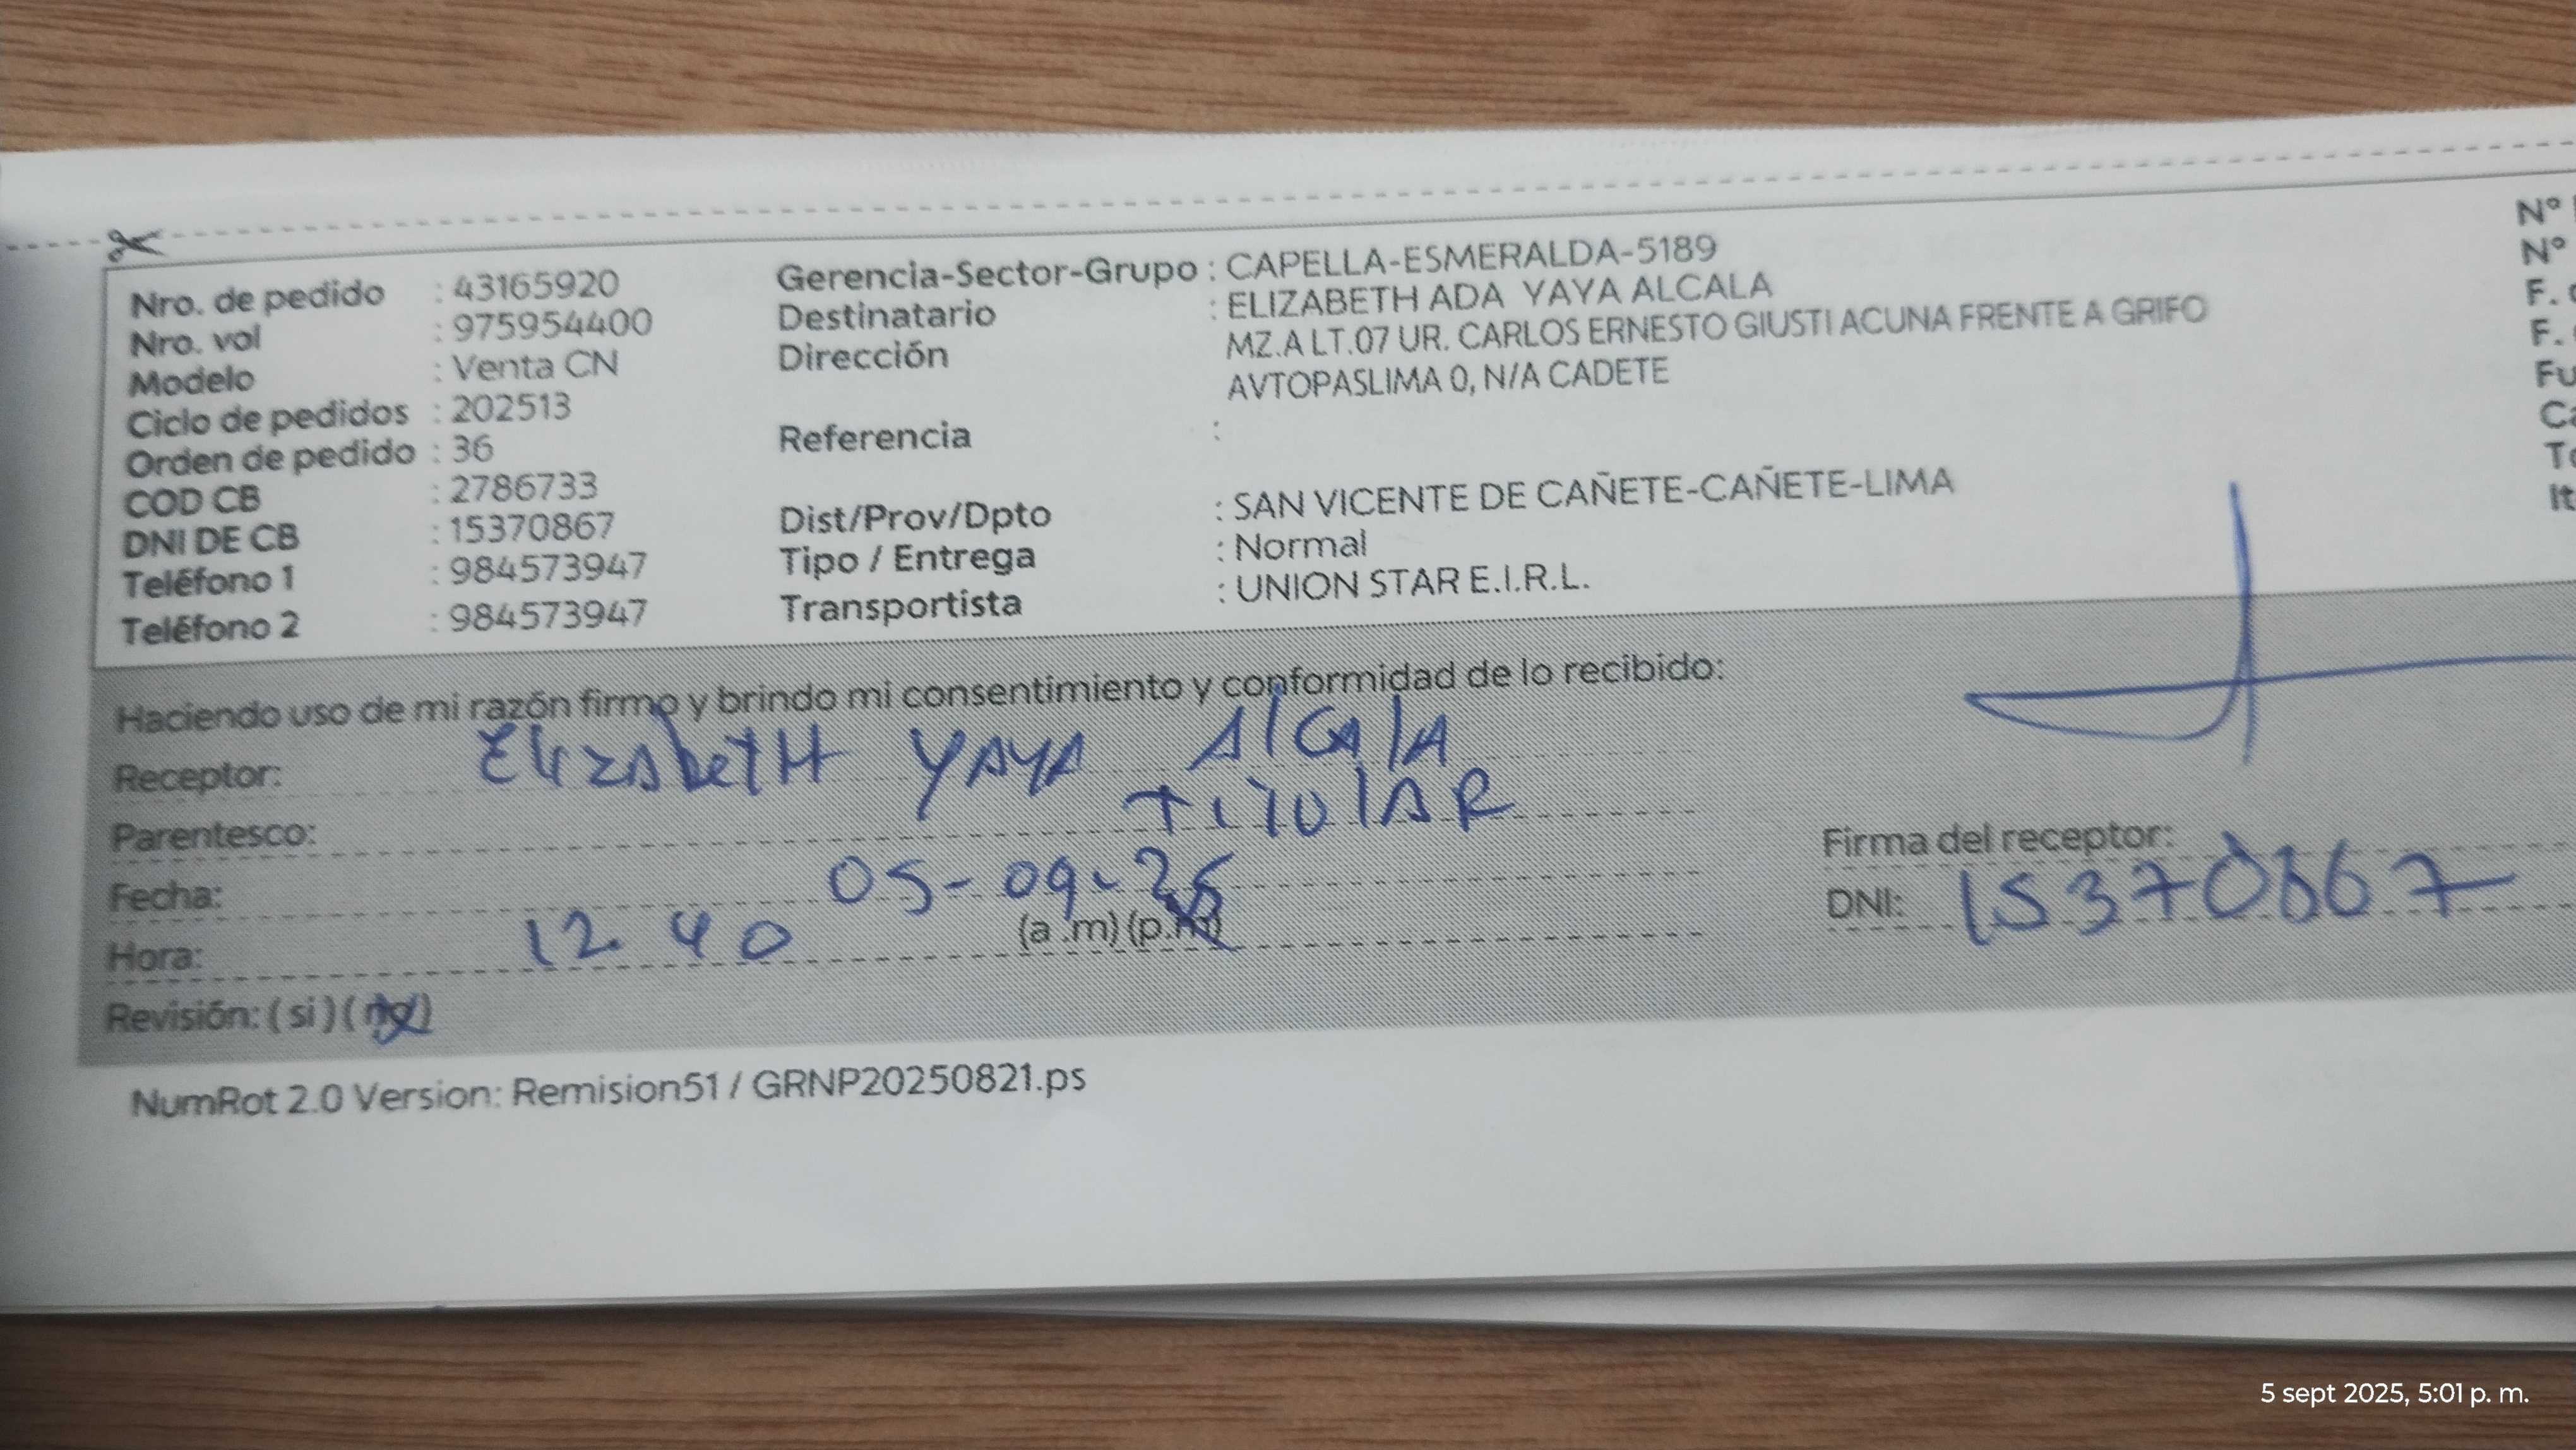 Nro. de pedido : 43165920
Nro. vol : 975954400
Modelo : Venta CN
Ciclo de pedidos : 202513
Orden de pedido : 36
COD CB : 2786733
DNI DE CB : 15370867
Teléfono 1 : 984573947
Teléfono 2 : 984573947
Gerencia-Sector-Grupo : CAPELLA-ESMERALDA-5189
Destinatario : ELIZABETH ADA YAYA ALCALA
Dirección MZ.A LT.07 UR. CARLOS ERNESTO GIUSTI ACUNA FRENTE A GRIFO
AVTOPASLIMA 0, N/A CADETE
Referencia :
Dist/Prov/Dpto : SAN VICENTE DE CAÑETE-CAÑETE-LIMA
Tipo / Entrega : Normal
Transportista : UNION STAR E.I.R.L.
N°
N°
F.
F.
Fu
Ca
To
It
Haciendo uso de mi razón firmo y brindo mi consentimiento y conformidad de lo recibido:
Receptor: ElizAbetH YAYA AlCAlA
Parentesco: TiTUlAR
Fecha: 05-09-25
Hora: 12 40 (a .m) (p.m)
Revisión: ( si ) ( no )
Firma del receptor:
DNI: 15370867
NumRot 2.0 Version: Remision51 / GRNP20250821.ps
5 sept 2025, 5:01 p. m.